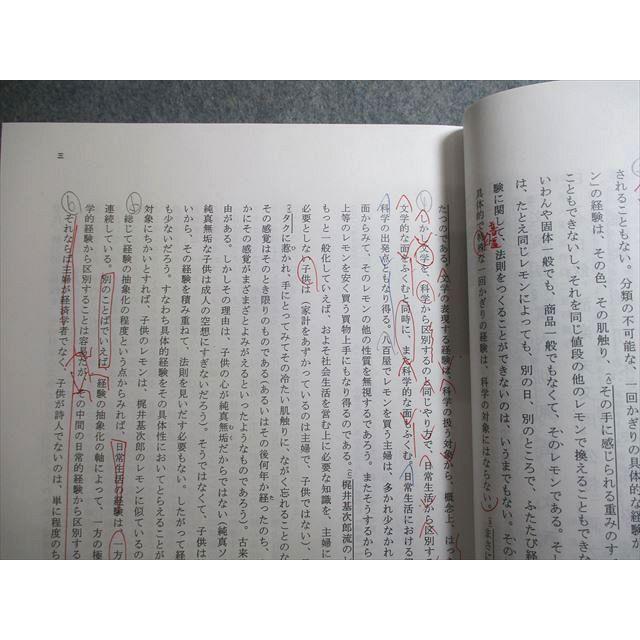 されることもない。分類の不可能な、一回かぎりの具体的な経験が
ン」の経験は、その色、その肌触り、その手に感じられる重みのす
こともできないし、それを同じ値段の他のレモンで換えることもでき
いわんや固体一般でも、商品一般でもなくて、そのレモンである。そ
は、たとえ同じレモンによっても、別の日、別のところで、ふたたび経
験に関して、法則をつくることができないのは、いうまでもない。その
具体的で特殊な一回かぎりの経験は、科学の対象にはならない。まさに
たつのである。文学の表現する経験は、科学の扱う対象から、概念上、はっ
しかし文学を、科学から区別するのと同じやり方で、日常生活から区別す
文学的な面をふくむと同時に、また科学的な面もふくむ。日常生活における
科学の出発点ともなり得る。八百屋でレモンを買う主婦は、多かれ少なかれ
面からみて、そのレモンの他の性質を無視するであろう。またそうするから
上等のレモンを安く買う買物上手にもなり得るのである。梶井基次郎流の
もっと一般化していえば、およそ社会生活を営む上に必要な知識を、主婦に
必要としない子供は（家計をあずかっているのは主婦で、子供ではない）、
タクに惹かれ、手にとってみてその冷たい肌触りに、ながく忘れることのな
その感覚はそのとき限りのものである（あるいはその後何年か経ったのち、
かにその感覚がまざまざとよみがえるといったようなものであろう）。古来
由がある。しかしその理由は、子供の心が純真無垢だからではない（純真ソ
純真無垢な子供は成人の空想にすぎないだろう）。そうではなくて、子供は
いから、その経験を積み重ねて、法則を見いだす必要もない。したがって経
も少ないだろう。すなわち具体的経験をその具体性においてとらえることが
対象にちかいとすれば、子供のレモンは、梶井基次郎のレモンに似ているの
総じて経験の抽象化の程度という点からみれば、日常生活の経験は、一方
連続している。別のことばでいえば、経験の抽象化の軸によって、一方の極
学的経験から区別することは容易だが、その中間の日常的経験から区別する
それならば主婦が経済学者でなく、子供が詩人でないのは、単に程度のち
三